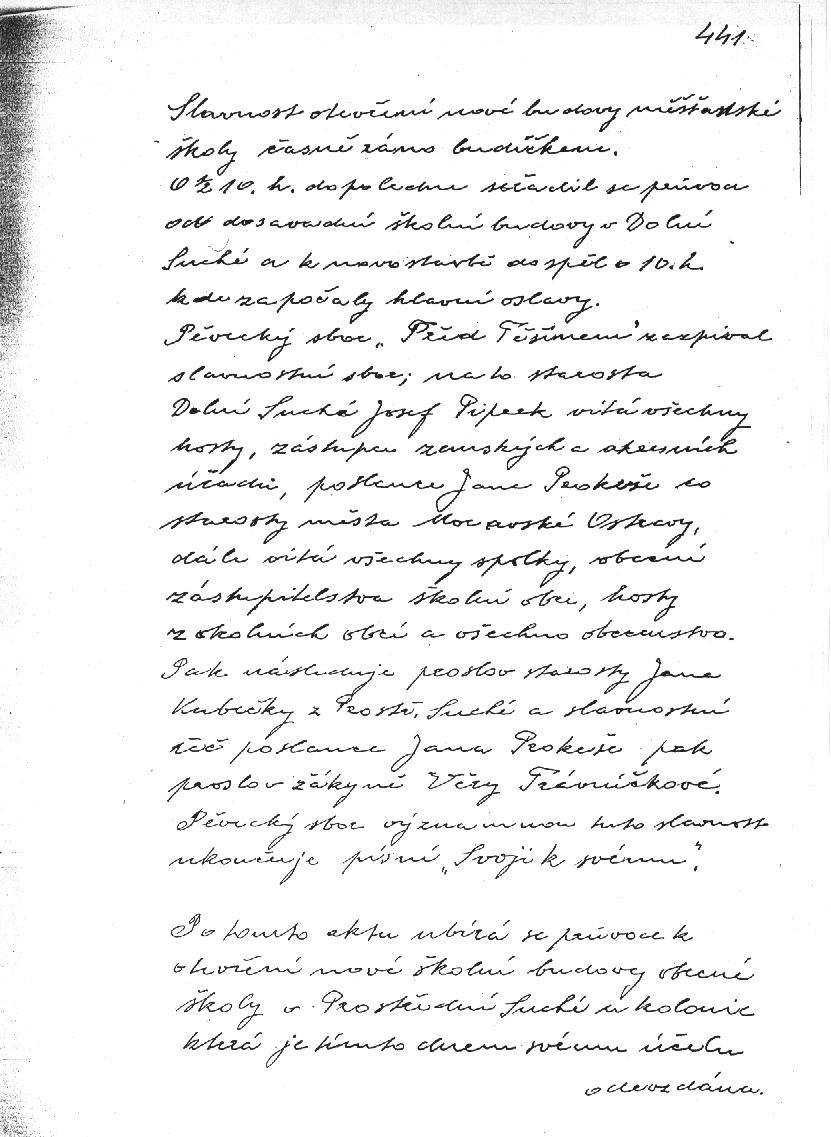 441.
Slavnost otevření nové budovy měšťanské
školy časně ráno budíčkem.
O ½ 10. h. dopoledne seřadil se průvod
od dosavadní školní budovy v Dolní
Suché a k novostavbě dospěl o 10. h.
kde započaly hlavní oslavy.
Pěvecký sbor „Před Těšínem" zazpíval
slavnostní sbor; na to starosta
Dolní Suché Josef Piprek vítá všechny
hosty, zástupce zemských a okresních
úřadů, poslance Jana Prokeše co
starosty města Moravské Ostravy,
dále vítá všechny spolky, obecní
zástupitelstva školní obcí, hosty
z okolních obcí a všechno obecenstvo.
Pak následuje proslov starosty Jana
Kubečky z Prostř. Suché a slavnostní
řeč poslance Jana Prokeše pak
proslov žákyně Věry Trávníčkové.
Pěvecký sbor významnou tuto slavnost
ukončuje písní „Svoji k svému".
Po tomto aktu ubírá se průvod k
otevření nové školní budovy obecné
školy v Prostřední Suché u kolonie
která je tímto dnem svému účelu
odevzdána.